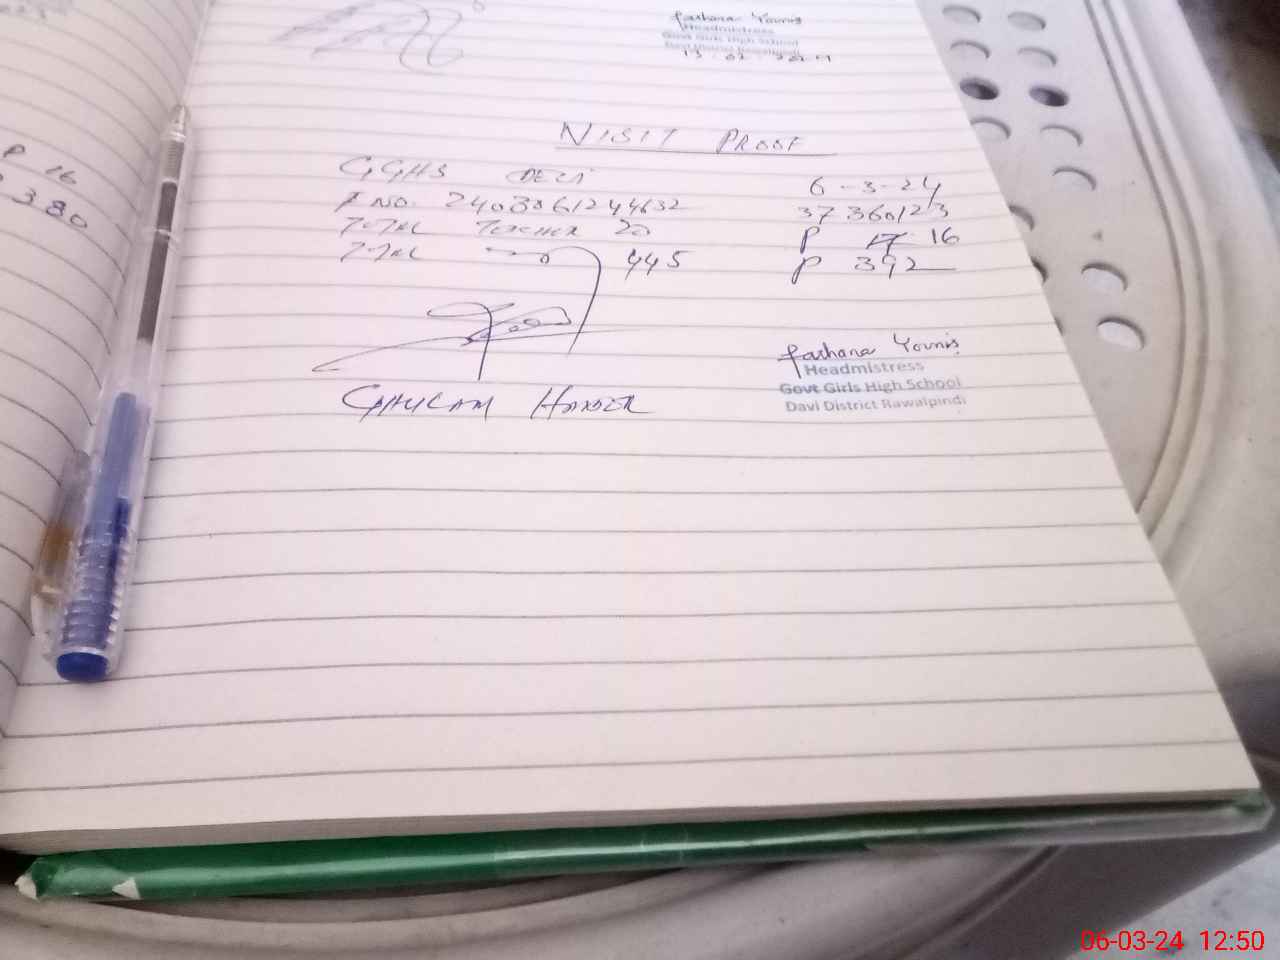 P 16
380
Farhana Younis
Headmistress
Govt Girls High School
Davi District Rawalpindi
13.02.2024
NISIT PROOF
GGHS DEVI 6-3-24
F NO. 2403061244632 37360123
TOTAL TEACHER 20 P 17 16
TOTAL 445 P 392
Farhana Younis
Headmistress
Govt Girls High School
Davi District Rawalpindi
GHULAM HAIDER
06-03-24 12:50